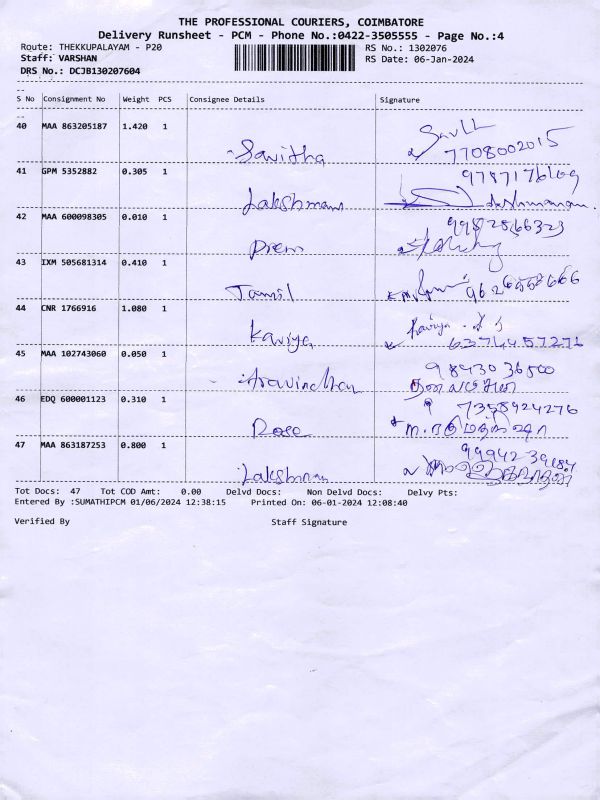 THE PROFESSIONAL COURIERS, COIMBATORE
Delivery Runsheet - PCM - Phone No.:0422-3505555 - Page No.:4
Route: THEKKUPALAYAM - P20 RS No.: 1302076
Staff: VARSHAN RS Date: 06-Jan-2024
DRS No.: DCJB130207604
S No Consignment No Weight PCS Consignee Details Signature
40 MAA 863205187 1.420 1
Savitha 7708002015
41 GPM 5352882 0.305 1
Lakshmanan
42 MAA 600098305 0.010 1
Prem
43 IXM 505681314 0.410 1
Tamil
44 CNR 1766916 1.080 1
Kaviya 6374457271
45 MAA 102743060 0.050 1 9843036500
Aravindhan
46 EDQ 600001123 0.310 1 7358924276
Rose
47 MAA 863187253 0.800 1
Lakshman
Tot Docs: 47 Tot COD Amt: 0.00 Delvd Docs: Non Delvd Docs: Delvy Pts:
Entered By :SUMATHIPCM 01/06/2024 12:38:15 Printed On: 06-01-2024 12:08:40
Verified By Staff Signature